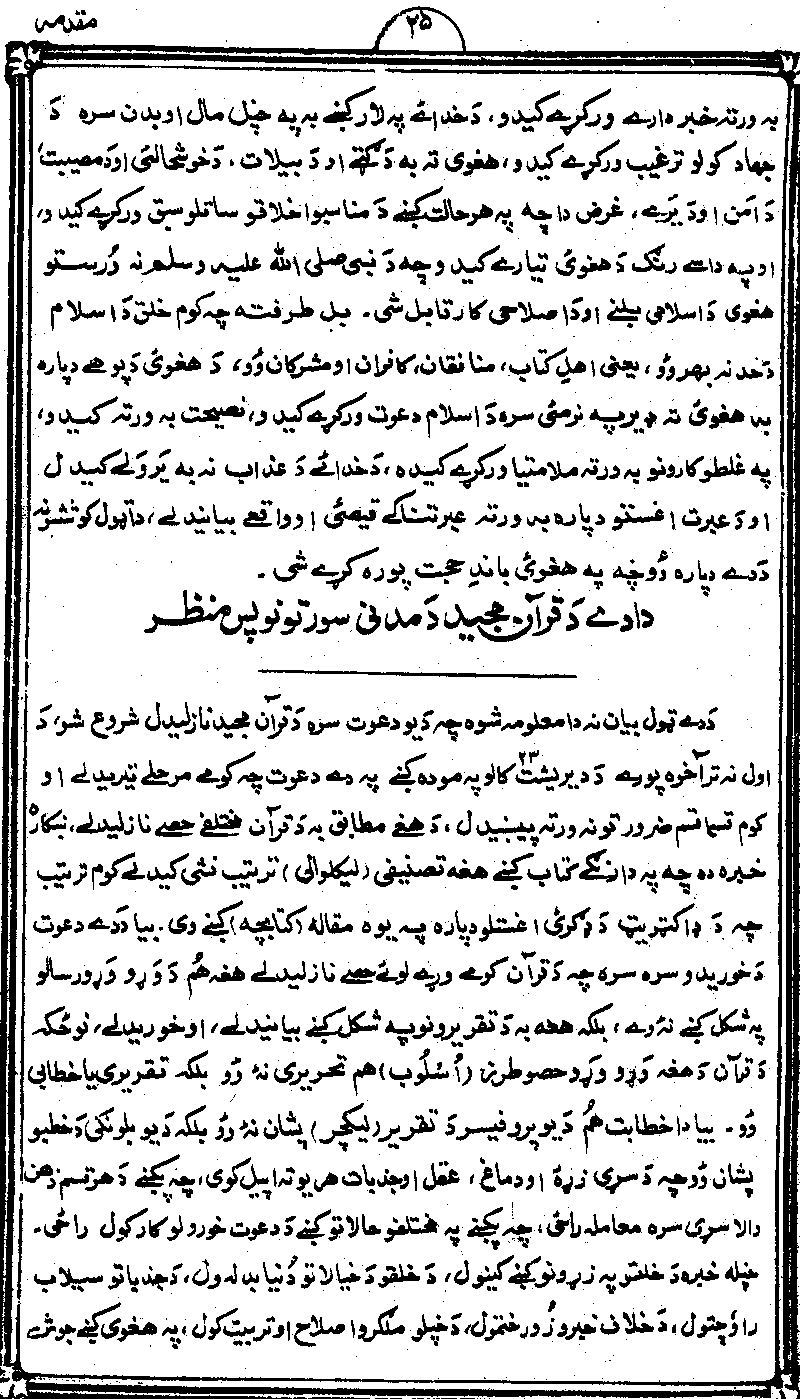 مقدمه
۲۵
به ورته خبر دارے ورکړے کیدو، دَ خدائے په لار کښے به په خپل مال او بدن سره دَ
جهاد کولو ترغیب ورکړے کیدو، هغوی ته به دَ ګټے او دَ بیلات، دَ خوشحالئی او دَ مصیبت،
دَ امن او دَ یَرے، غرض دا چه په هر حالت کښے دَ مناسبو اخلاقو ساتلو سبق ورکړے کیدو،
او په داسے رنګ دَ هغوئ تیارے کیدو چه دَ نبی صلی الله علیه وسلم نه وُرستو
هغوی دَ اسلامی بلنے او دَ اصلاحی کار قابل شی۔ بل طرفته چه کوم خلق دَ اسلام
دَ حد نه بهر وُو، یعنی اهلِ کتاب، منافقان، کافران او مشرکان وُو، دَ هغوئ دَ پوهے دپاره
به هغوئ ته ډیر په نرمئ سره دَ اسلام دعوت ورکړے کیدو، نصیحت به ورته کیدو،
په غلطو کارونو به ورته ملامتیا ورکړے کیده، دَ خدائے دَ عذاب نه به یَرولے کیدل
او دَ عبرت اغستو دپاره به ورته عبرتناکے قیصئ او واقعے بیانیدلے، دا ټول کوششونه
دَدے دپاره وُو چه په هغوئ باندِ حجت پوره کړے شی۔
دا دے دَ قرآن مجید دَ مدنی سورتونو پس منظر
دَدے ټول بیان نه دا معلومه شوه چه دَ یو دعوت سره دَ قرآن مجید نازلیدل شروع شو، دَ
اول نه تر آخره پورے دَ دیریشت ۲۳ کالو په موده کښے په دے دعوت چه کومے مرحلے تیریدلے او
کوم قسما قسم ضرورتونه ورته پیښیدل، دَ هغے مطابق به دَ قرآن مختلفے حصے نازلیدلے، ښکاره
خبره ده چه په دا رنګے کتاب کښے هغه تصنیفی (لیکلوالی) ترتیب نشی کیدلے کوم ترتیب
چه دَ ډاکټریټ دَ ډګرئ اغستلو دپاره په یوه مقاله (کتابچه) کښے وی۔ بیا دَدے دعوت
دَ خوریدو سره سره چه دَ قرآن کومے ورے لوئے حصے نازلیدلے هغه هُم دَ وَړو وَړو رسالو
په شکل کښے نهٔ وے، بلکه هغه به دَ تقریرونو په شکل کښے بیانیدلے، او خوریدلے، نو ځکه
دَ قرآن دَ هغه وَړو وَړو حصو طرز (اُسلُوب) هم تحریری نهٔ وُو بلکه تقریری یا خطابی
وُو۔ بیا دا خطابت هُم دَ یو پروفیسر دَ تقریر (لیکچر) پشان نهٔ وُو بلکه دَ یو بلونکی دَ خطبو
پشان وُو چه دَ سړی زړهٔ او دماغ، عقل او جذبات هر یو ته اپیل کوی، چه پکښے دَ هر قسم ذهن
والا سړی سره معامله راځی، چه پکښے په مختلفو حالاتو کښے دَ دعوت خورولو کار کول راځی۔
خپله خبره دَ خلقو په زړونو کښے کینول، دَ خلقو دَ خیالاتو دُنیا بدلول، دَ جذباتو سیلاب
راوُچتول، دَ خلاف خبرو زُور ختمول، دَ خپلو ملګرو اصلاح او تربیت کول، په هغوی کښے جوش